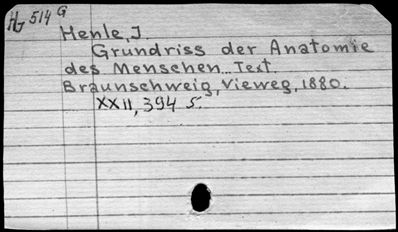 Hg 514 G
Henle, J.
Grundriss der Anatomie
des Menschen... Text.
Braunschweig, Vieweg, 1880.
XXII, 394 S.